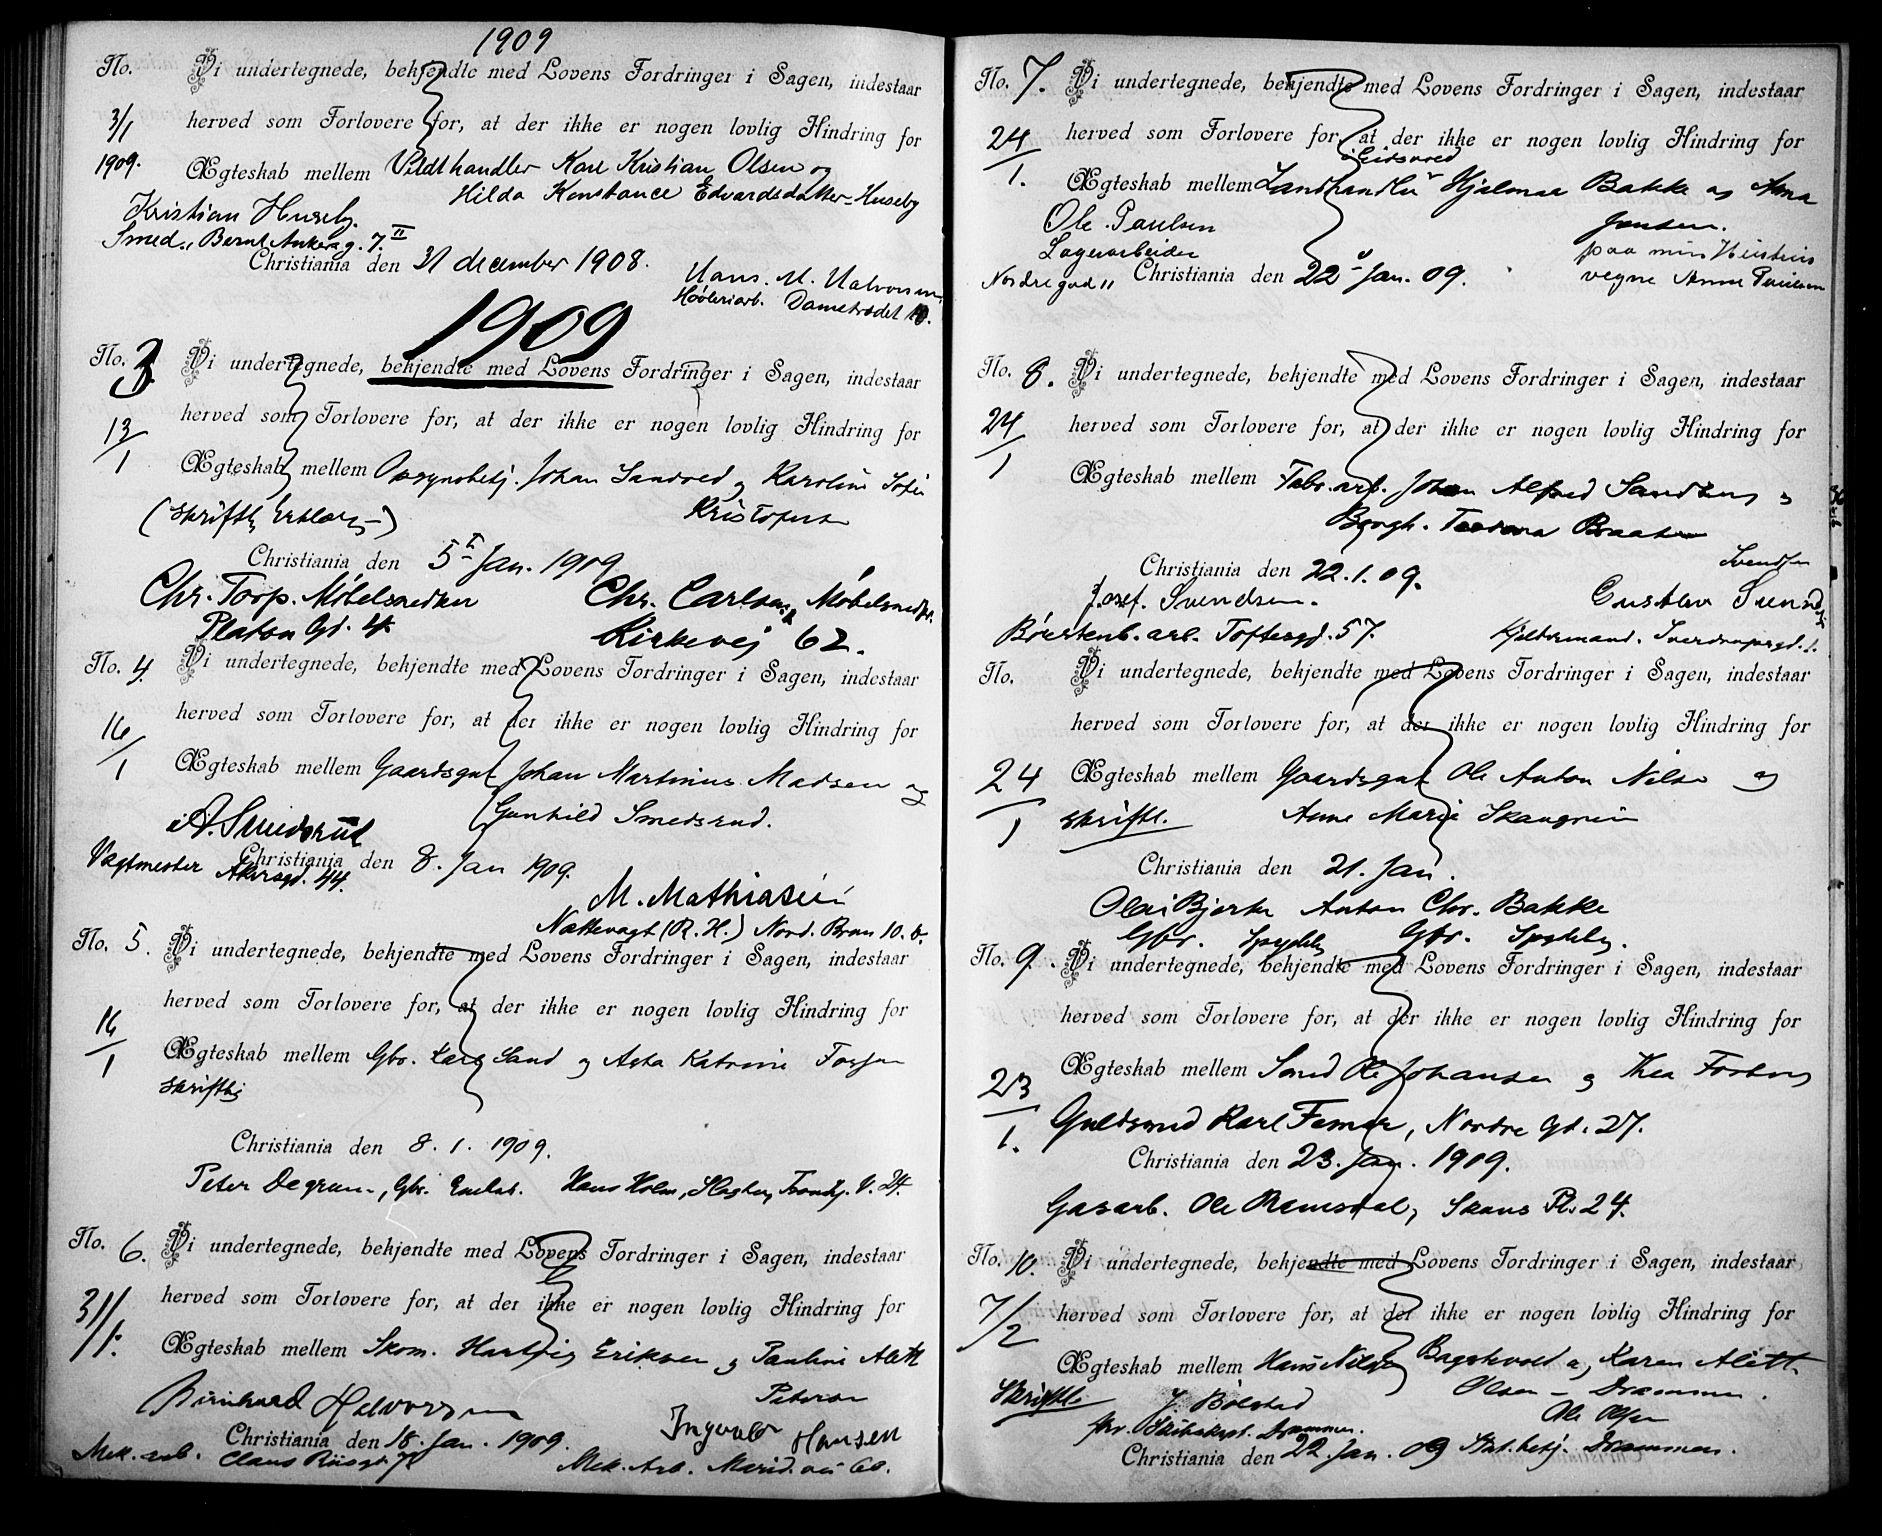 1909
No. Vi undertegnede, bekjendte med Lovens Fordringer i Sagen, indestaar
3/1 herved som Forlovere for, at der ikke er nogen lovlig Hindring for
1909. Ægteskab mellem Vildthandler Karl Kristian Olsen og
Hilda Konstance Edvardsdatter Huseby
Kristian Huseby.
Smed., Bernt Ankersg. 7 II
Christiania den 31 december 1908.
Hans. M. Halvorsen
Høvleriarb. Damstrædet 10.
1909
No. 3 Vi undertegnede, bekjendte med Lovens Fordringer i Sagen, indestaar
13/1 herved som Forlovere for, at der ikke er nogen lovlig Hindring for
Ægteskab mellem Opsynsbetj. Johan Sandved og Karoline Sofie
(Skriftl. Erklæg) Kristofersen
Christiania den 5 Jan. 1909
Chr. Torp. Møbelsnedker Chr. Carlsen, Møbelsnedker
Platou Gd. 4. Kirkevej 62.
No. 4. Vi undertegnede, bekjendte med Lovens Fordringer i Sagen, indestaar
16/1 herved som Forlovere for, at der ikke er nogen lovlig Hindring for
Ægteskab mellem Gaardsgut Johan Martinius Madsen og
Gunhild Smedsrud.
A. Smedsrud
Vagtmester Akersgd. 44. Christiania den 8. Jan 1909.
M. Mathiasen
Nattevagt (R. H.) Nord. Bran 10. b.
No. 5. Vi undertegnede, bekjendte med Lovens Fordringer i Sagen, indestaar
16/1 herved som Forlovere for, at der ikke er nogen lovlig Hindring for
Ægteskab mellem Gbr. Karl Sand og Asta Katrine
skriftlig
Christiania den 8. 1. 1909.
Peter Degrum, Gbr. Hans Holm, V. 24.
No. 6. Vi undertegnede, bekjendte med Lovens Fordringer i Sagen, indestaar
31/1. herved som Forlovere for, at der ikke er nogen lovlig Hindring for
Ægteskab mellem Skom. Hartvig Eriksen og Pauline Alette
Petersen
Bernhard Halvorsen Ingvald Hansen
Christiania den 18. Jan. 1909.
Mek. arb. Claus Riisgt. Mek. Arb. Marid. vei 60.
No. 7. Vi undertegnede, bekjendte med Lovens Fordringer i Sagen, indestaar
24/1. herved som Forlovere for, at der ikke er nogen lovlig Hindring for
Eidsvold
Ægteskab mellem Landhandler Hjalmar Bakke og Anna
Ole Paulsen Jensen.
Lagerarbeider paa min Hustrus
Nordregad 11 Christiania den 22 Jan. 09. vegne Anne Paulsen
No. 8. Vi undertegnede, bekjendte med Lovens Fordringer i Sagen, indestaar
24/1 herved som Forlovere for, at der ikke er nogen lovlig Hindring for
Ægteskab mellem Fabr. arb. Johan Alfred Sandberg og
Borgh. Teodora Braaten
Christiania den 22. 1. 09. Svendsen
Josef. Svendsen. Gustav
Børstenb. arb. Toftesgd. 57. Kjelermand. Sverdrupsgd. 1.
No. Vi undertegnede, bekjendte med Lovens Fordringer i Sagen, indestaar
herved som Forlovere for, at der ikke er nogen lovlig Hindring for
24/1 Ægteskab mellem Gaardsgut Ole Anton Nilsen og
skriftl. Anne Marie
Christiania den 21. Jan.
Olai Bjerke Anton Chr. Bakke
Gbr. Spydeb. Gbr. Spydeberg.
No. 9. Vi undertegnede, bekjendte med Lovens Fordringer i Sagen, indestaar
herved som Forlovere for, at der ikke er nogen lovlig Hindring for
23/1. Ægteskab mellem Smed Ole Johansen og Thea Forberg
Guldsmed Karl Femer, Nordre Gd. 27.
Christiania den 23. Jan. 1909.
Gasarb. Ole Ramsdal, Skaus Pl. 24.
No. 10. Vi undertegnede, bekjendte med Lovens Fordringer i Sagen, indestaar
7/2 herved som Forlovere for, at der ikke er nogen lovlig Hindring for
Ægteskab mellem Hans Nilsen Bagstevold og Karen Alette
Skriftl. J. Bølstad Olsen – Drammen.
fhv. Skibskapt. Drammen. Ole Olsen
Christiania den 22. Jan. 09 Stat. betj. Drammen.